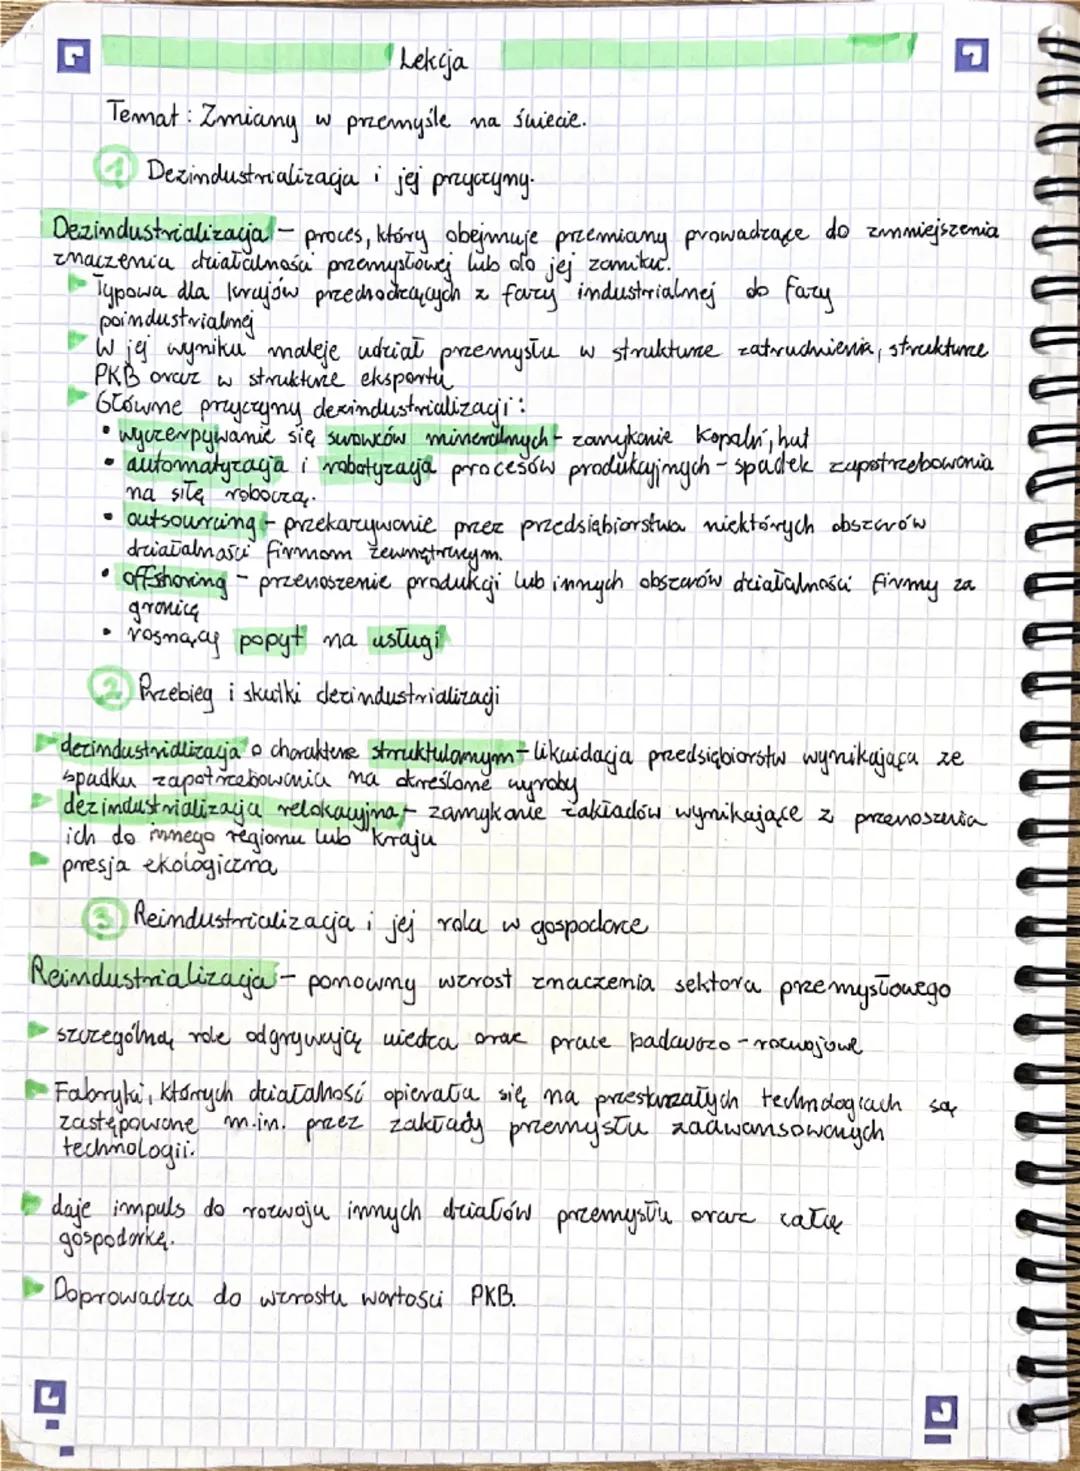 Lekcja
Temat: Zmiany w przemyśle na świecie.
1 Dezindustrializacja i jej przyczyny.
Dezindustrializacja – proces, który obejmuje przemiany prowadzące do zmniejszenia
znaczenia działalności przemysłowej lub do jej zaniku.
Typowa dla krajów przechodzących z fazy industrialnej do fazy
poindustrialnej
W jej wyniku maleje udział przemysłu w strukturze zatrudnienia, strukturze
PKB oraz w strukturze eksportu
Główne przyczyny dezindustrializacji:
• wyczerpywanie się surowców mineralnych – zamykanie kopalń, hut
• automatyzacja i robotyzacja procesów produkcyjnych – spadek zapotrzebowania
na siłę roboczą.
• outsourcing – przekazywanie przez przedsiębiorstwa niektórych obszarów
działalności firmom zewnętrznym.
• offshoring – przenoszenie produkcji lub innych obszarów działalności firmy za
granicę
• rosnący popyt na usługi
2 Przebieg i skutki dezindustrializacji
dezindustrializacja o charakterze strukturalnym – likwidacja przedsiębiorstw wynikająca ze
spadku zapotrzebowania na określone wyroby
dezindustrializacja relokacyjna – zamykanie zakładów wynikające z przenoszenia
ich do innego regionu lub kraju
presja ekologiczna
3 Reindustrializacja i jej rola w gospodarce
Reindustrializacja – ponowny wzrost znaczenia sektora przemysłowego
szczególną role odgrywają wiedza oraz prace badawczo-rozwojowe
Fabryki, których działalność opierała się na przestarzałych technologiach są
zastępowane m.in. przez zakłady przemysłu zaawansowanych
technologii.
daje impuls do rozwoju innych działów przemysłu oraz całą
gospodarkę.
Doprowadza do wzrostu wartości PKB.